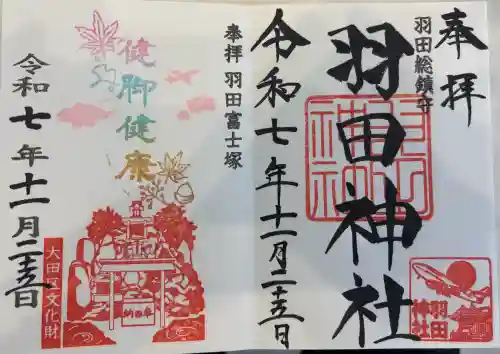 奉拝
羽田総鎮守
羽田神社
令和七年十一月二十五日
羽田神社
奉拝 羽田富士塚
健脚健康
大田区文化財
奉納
令和七年十一月二十五日